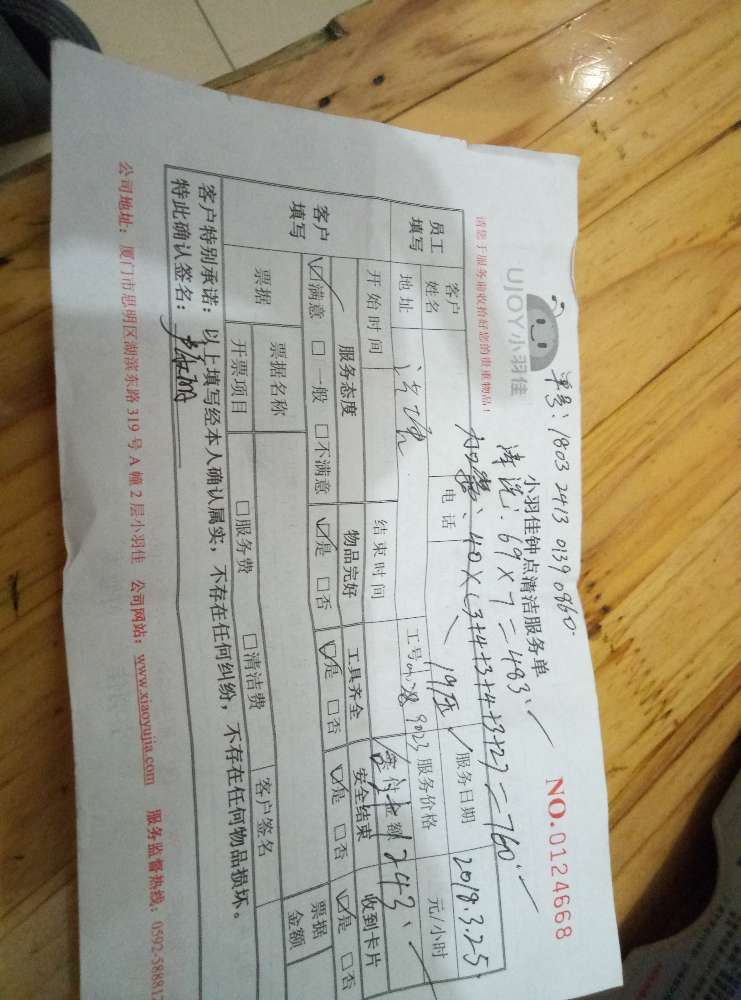 单号：1803 2413 0139 0860.
UJOY小羽佳
小羽佳钟点清洁服务单
NO.0124668
清洗：69×7=483.
请您于服务前收拾好您的贵重物品！
40×(3+4+3+4+3+2)=760.
员工填写
客户姓名
电话
19座
服务日期
2018.3.25.
地址
工号
9023
服务价格
元/小时
开始时间
结束时间
应付金额
1243.
客户填写
服务态度
物品完好
工具齐全
安全结束
收到卡片
☑满意 □一般 □不满意
☑是 □否
☑是 □否
☑是 □否
☑是 □否
票据
票据名称
票据金额
开票项目
□服务费 □清洁费
客户签名
客户特别承诺：以上填写经本人确认属实，不存在任何纠纷，不存在任何物品损坏。
特此确认签名：
公司地址：厦门市思明区湖滨东路 319 号 A 幢 2 层小羽佳 公司网站：www.xiaoyujia.com 服务监督热线：0592-588881